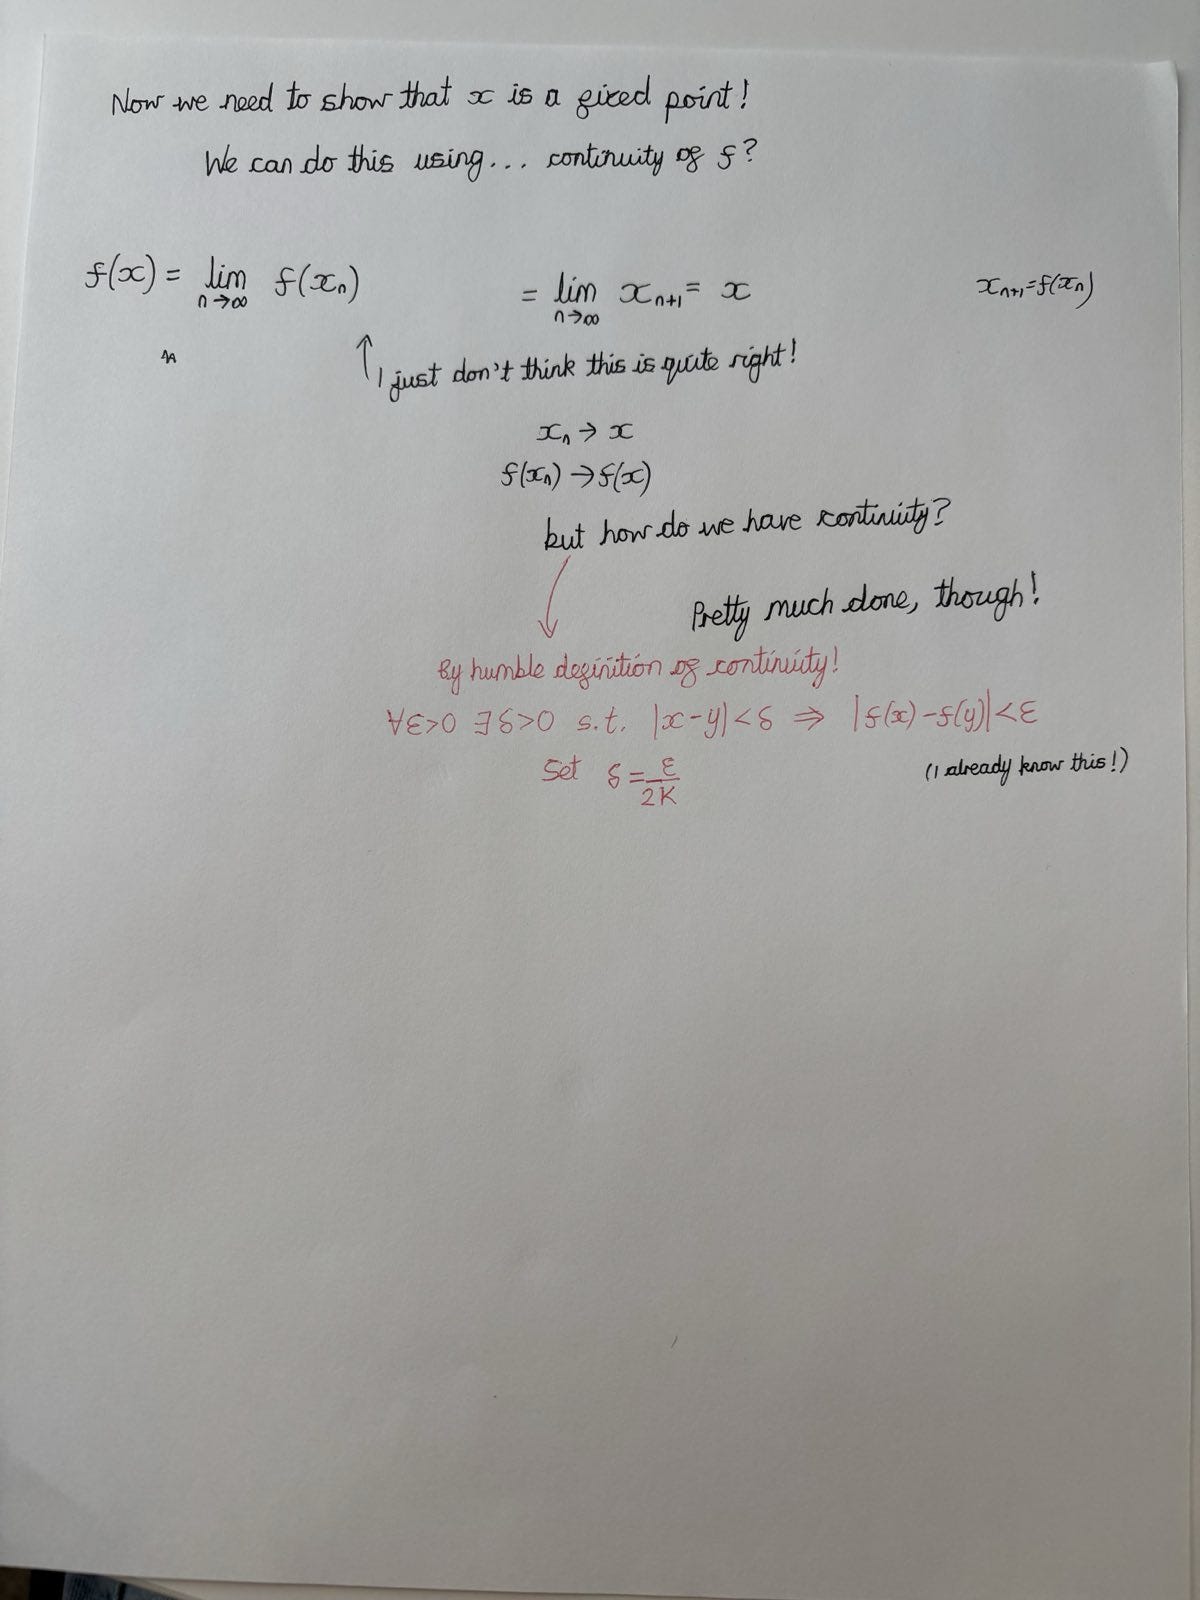 Now we need to show that x is a fixed point!
We can do this using... continuity of f?
f(x) = lim n→∞ f(xₙ) = lim n→∞ xₙ₊₁ = x
xₙ₊₁=f(xₙ)
↑ I just don't think this is quite right!
xₙ → x
f(xₙ) → f(x)
but how do we have continuity?
Pretty much done, though!
By humble definition of continuity!
∀ε>0 ∃δ>0 s.t. |x-y|<δ ⇒ |f(x)-f(y)|<ε
Set δ = ε/2K
(I already know this!)